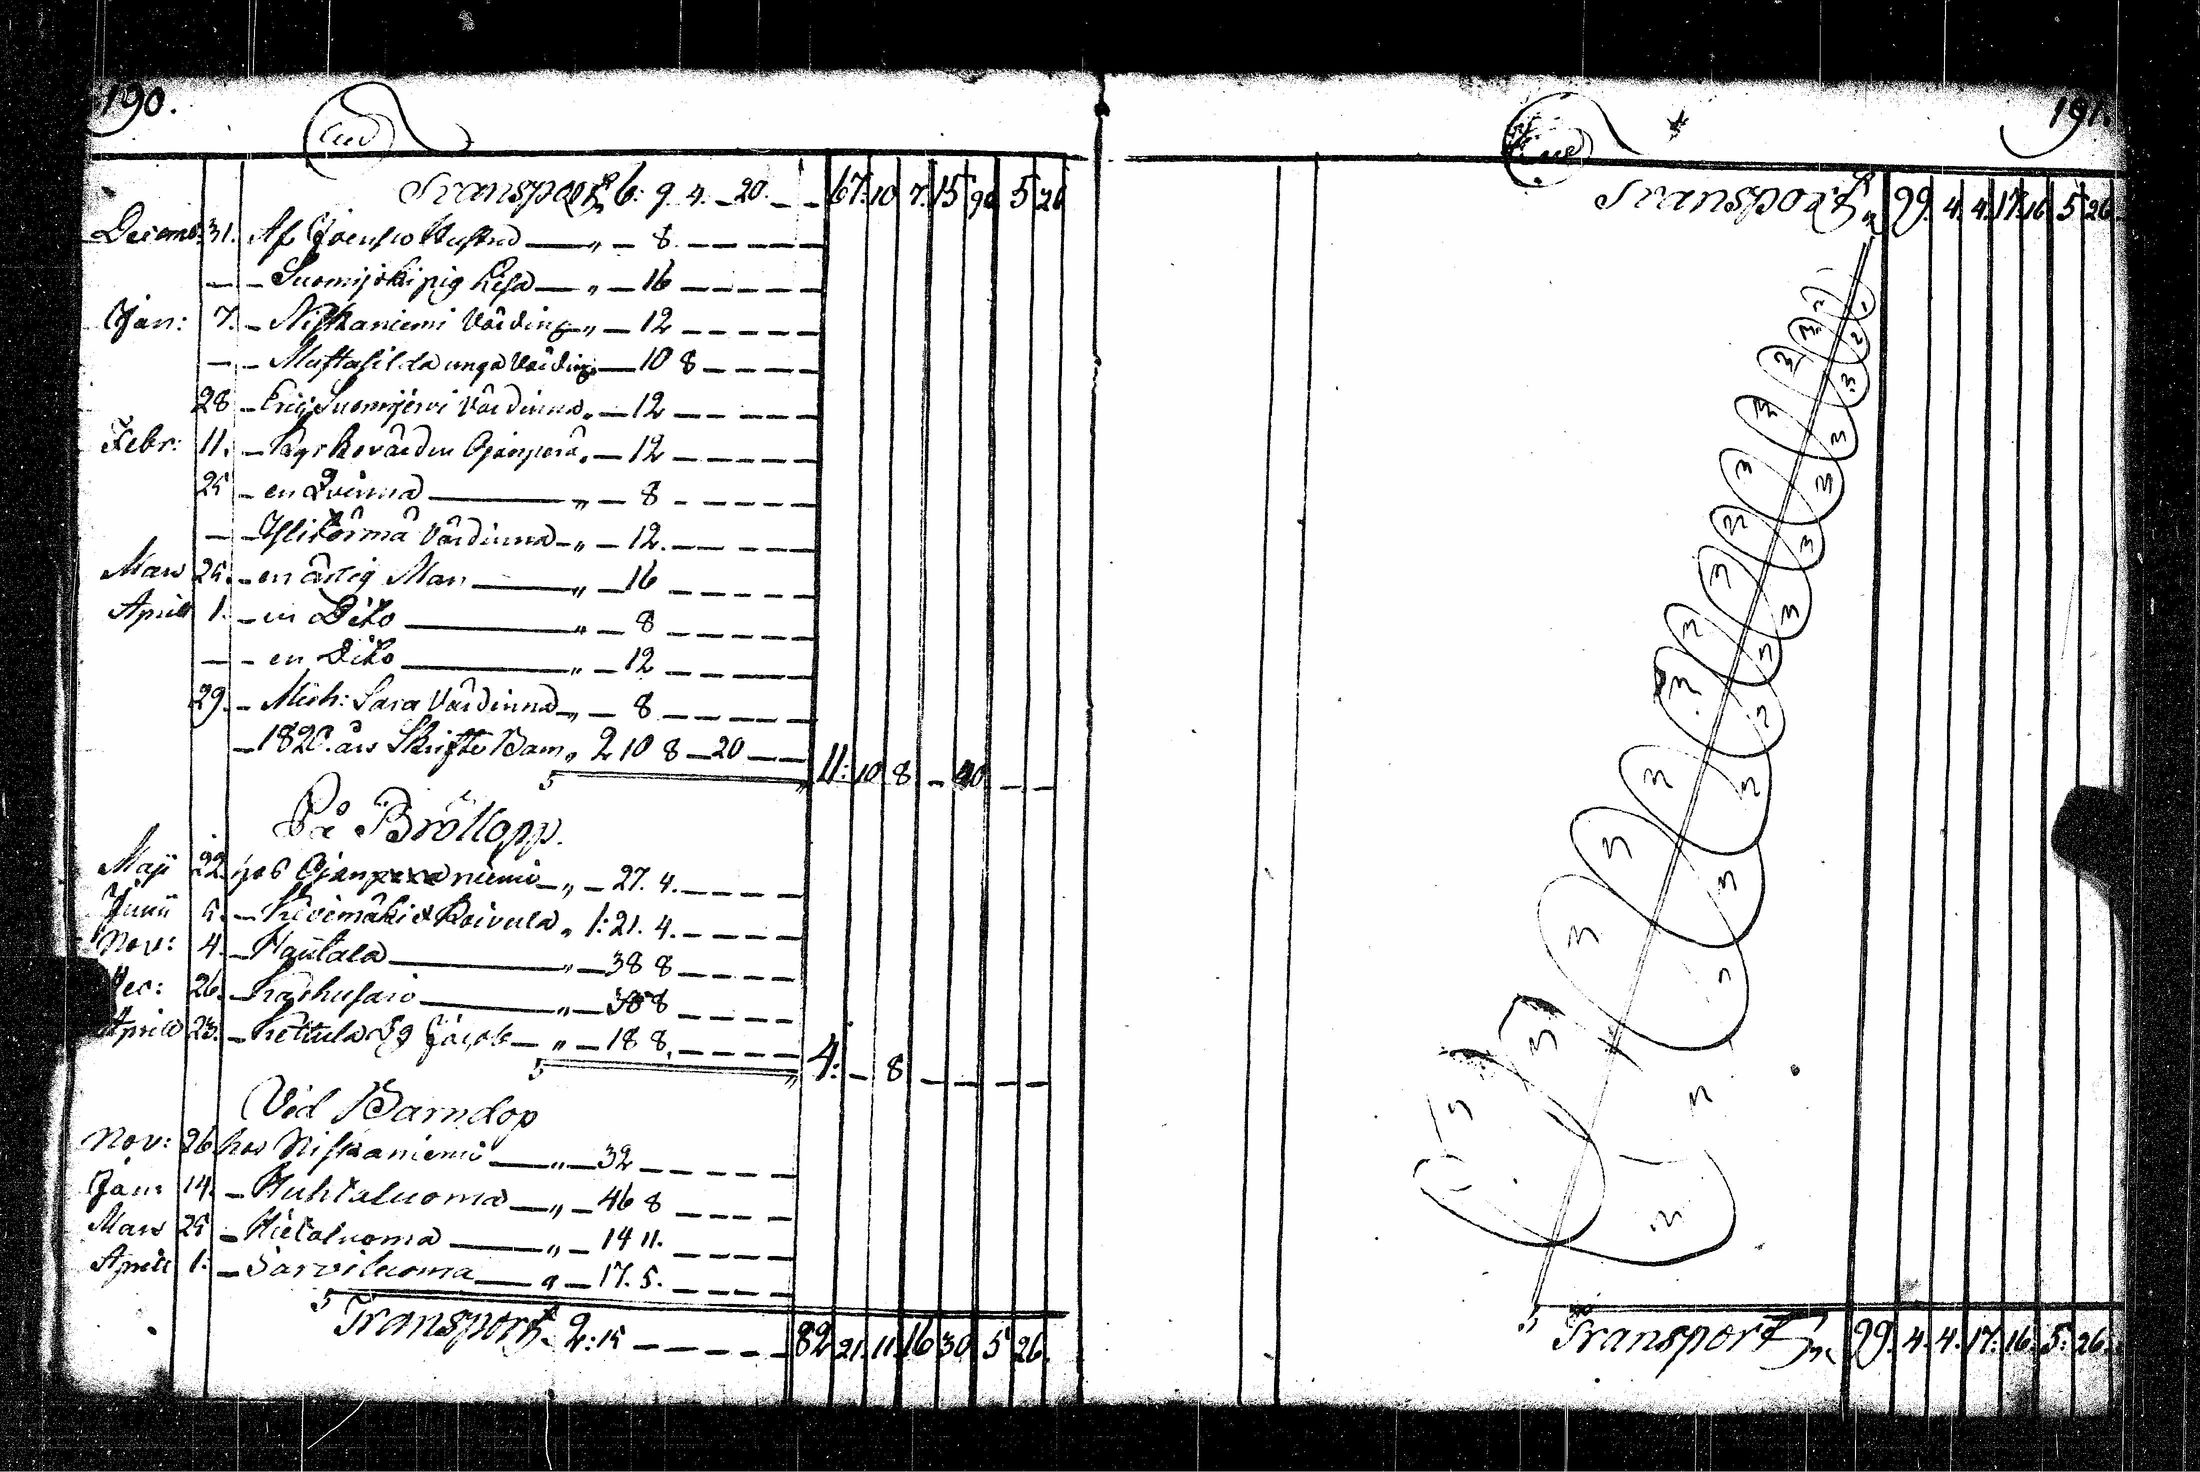 190.
Transport 6. 9. 4. – 20. – – 67. 10 7. 15 90 5 26
Decemb: 31. Af Joensuu Hustru — " – 8. – – – –
— – Suomijoki pig Lisa — " – 16 – – – –
Jan: 7. – Niskaniemi Värding " – 12 – – – –
— – Mustasilda unga Värding " — 10 8 – – – –
28 – Eric Suomijervi Värdinna " – 12 – – – –
Febr: 11. – Kyrkovärden Ojanperä " – 12 – – – –
25 – en Qvinna — " – 8 – – – –
— – Ylitörmä Värdinna – " – 12. – – – –
Mars 25. – en ärlig Man — " – 16 – – – –
Aprill 1. – en Dito — " – 8 – – – –
— – en Dito — " – 12 – – – –
29. – Mich: Sara Värdinna – " – 8 – – – –
– 1820. års Skrifte Barn " 2 10 8 – 20 – – 11: 10 8 – 20 – –
På Bröllopp.
Maji 22. hos Ojanperä niemi – " – 27. 4. – – – –
Junii 5. – Kivimäki & Koivula " 1: 21. 4. – – – –
Nov: 4. – Hautala — " – 38 8 – – – –
Dec: 26. – Karhusaio — " – 38 8 – – – –
Aprill 23. – Kettula Jacob — " – 18 8. – – – – 4: – 8 – – – –
Vid Barndop
Nov: 26 hos Niskaniemi — " – 32 – – – –
Jan: 14. – Huhtaluoma – " – 46 8 – – – –
Mars 25 – Hietaluoma — " – 14 11. – – – –
Aprill 1. – Sarviluoma — " – 17. 5. – – – –
Transport. 2: 15 – – – – – 82 21. 11. 16 30 5 26.
191.
Transport Sm 99. 4. 4. 17. 16 5 26
Transport Sm 99. 4. 4. 17. 16. 5. 26.